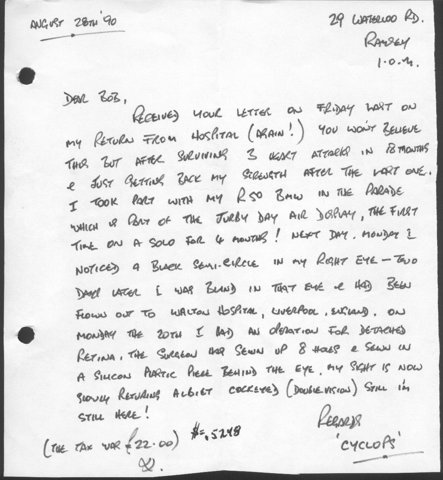 AUGUST 28TH '90
29 WATERLOO RD.
RAMSEY
I.O.M.
DEAR BOB,
RECEIVED YOUR LETTER ON FRIDAY LAST ON
MY RETURN FROM HOSPITAL (AGAIN!) YOU WON'T BELIEVE
THIS BUT AFTER SURVIVING 3 HEART ATTACKS IN 18 MONTHS
& JUST GETTING BACK MY STRENGTH AFTER THE LAST ONE.
I TOOK PART WITH MY R50 BMW IN THE PARADE
WHICH IS PART OF THE JURBY DAY AIR DISPLAY, THE FIRST
TIME ON A SOLO FOR 4 MONTHS! NEXT DAY. MONDAY I
NOTICED A BLACK SEMI-CIRCLE IN MY RIGHT EYE - TWO
DAYS LATER I WAS BLIND IN THAT EYE & HAD BEEN
FLOWN OUT TO WALTON HOSPITAL, LIVERPOOL, ENGLAND. ON
MONDAY THE 20TH I HAD AN OPERATION FOR DETACHED
RETINA. THE SURGEON HAS SEWN UP 8 HOLES & SEWN IN
A SILICON PLASTIC PIECE BEHIND THE EYE. MY SIGHT IS NOW
SLOWLY RETURING ALBIET COCKEYED (DOUBLEVISION) STILL I'M
STILL HERE!
REGARDS
'CYCLOPS'
(THE TAX WAS £22.00) $=.5248